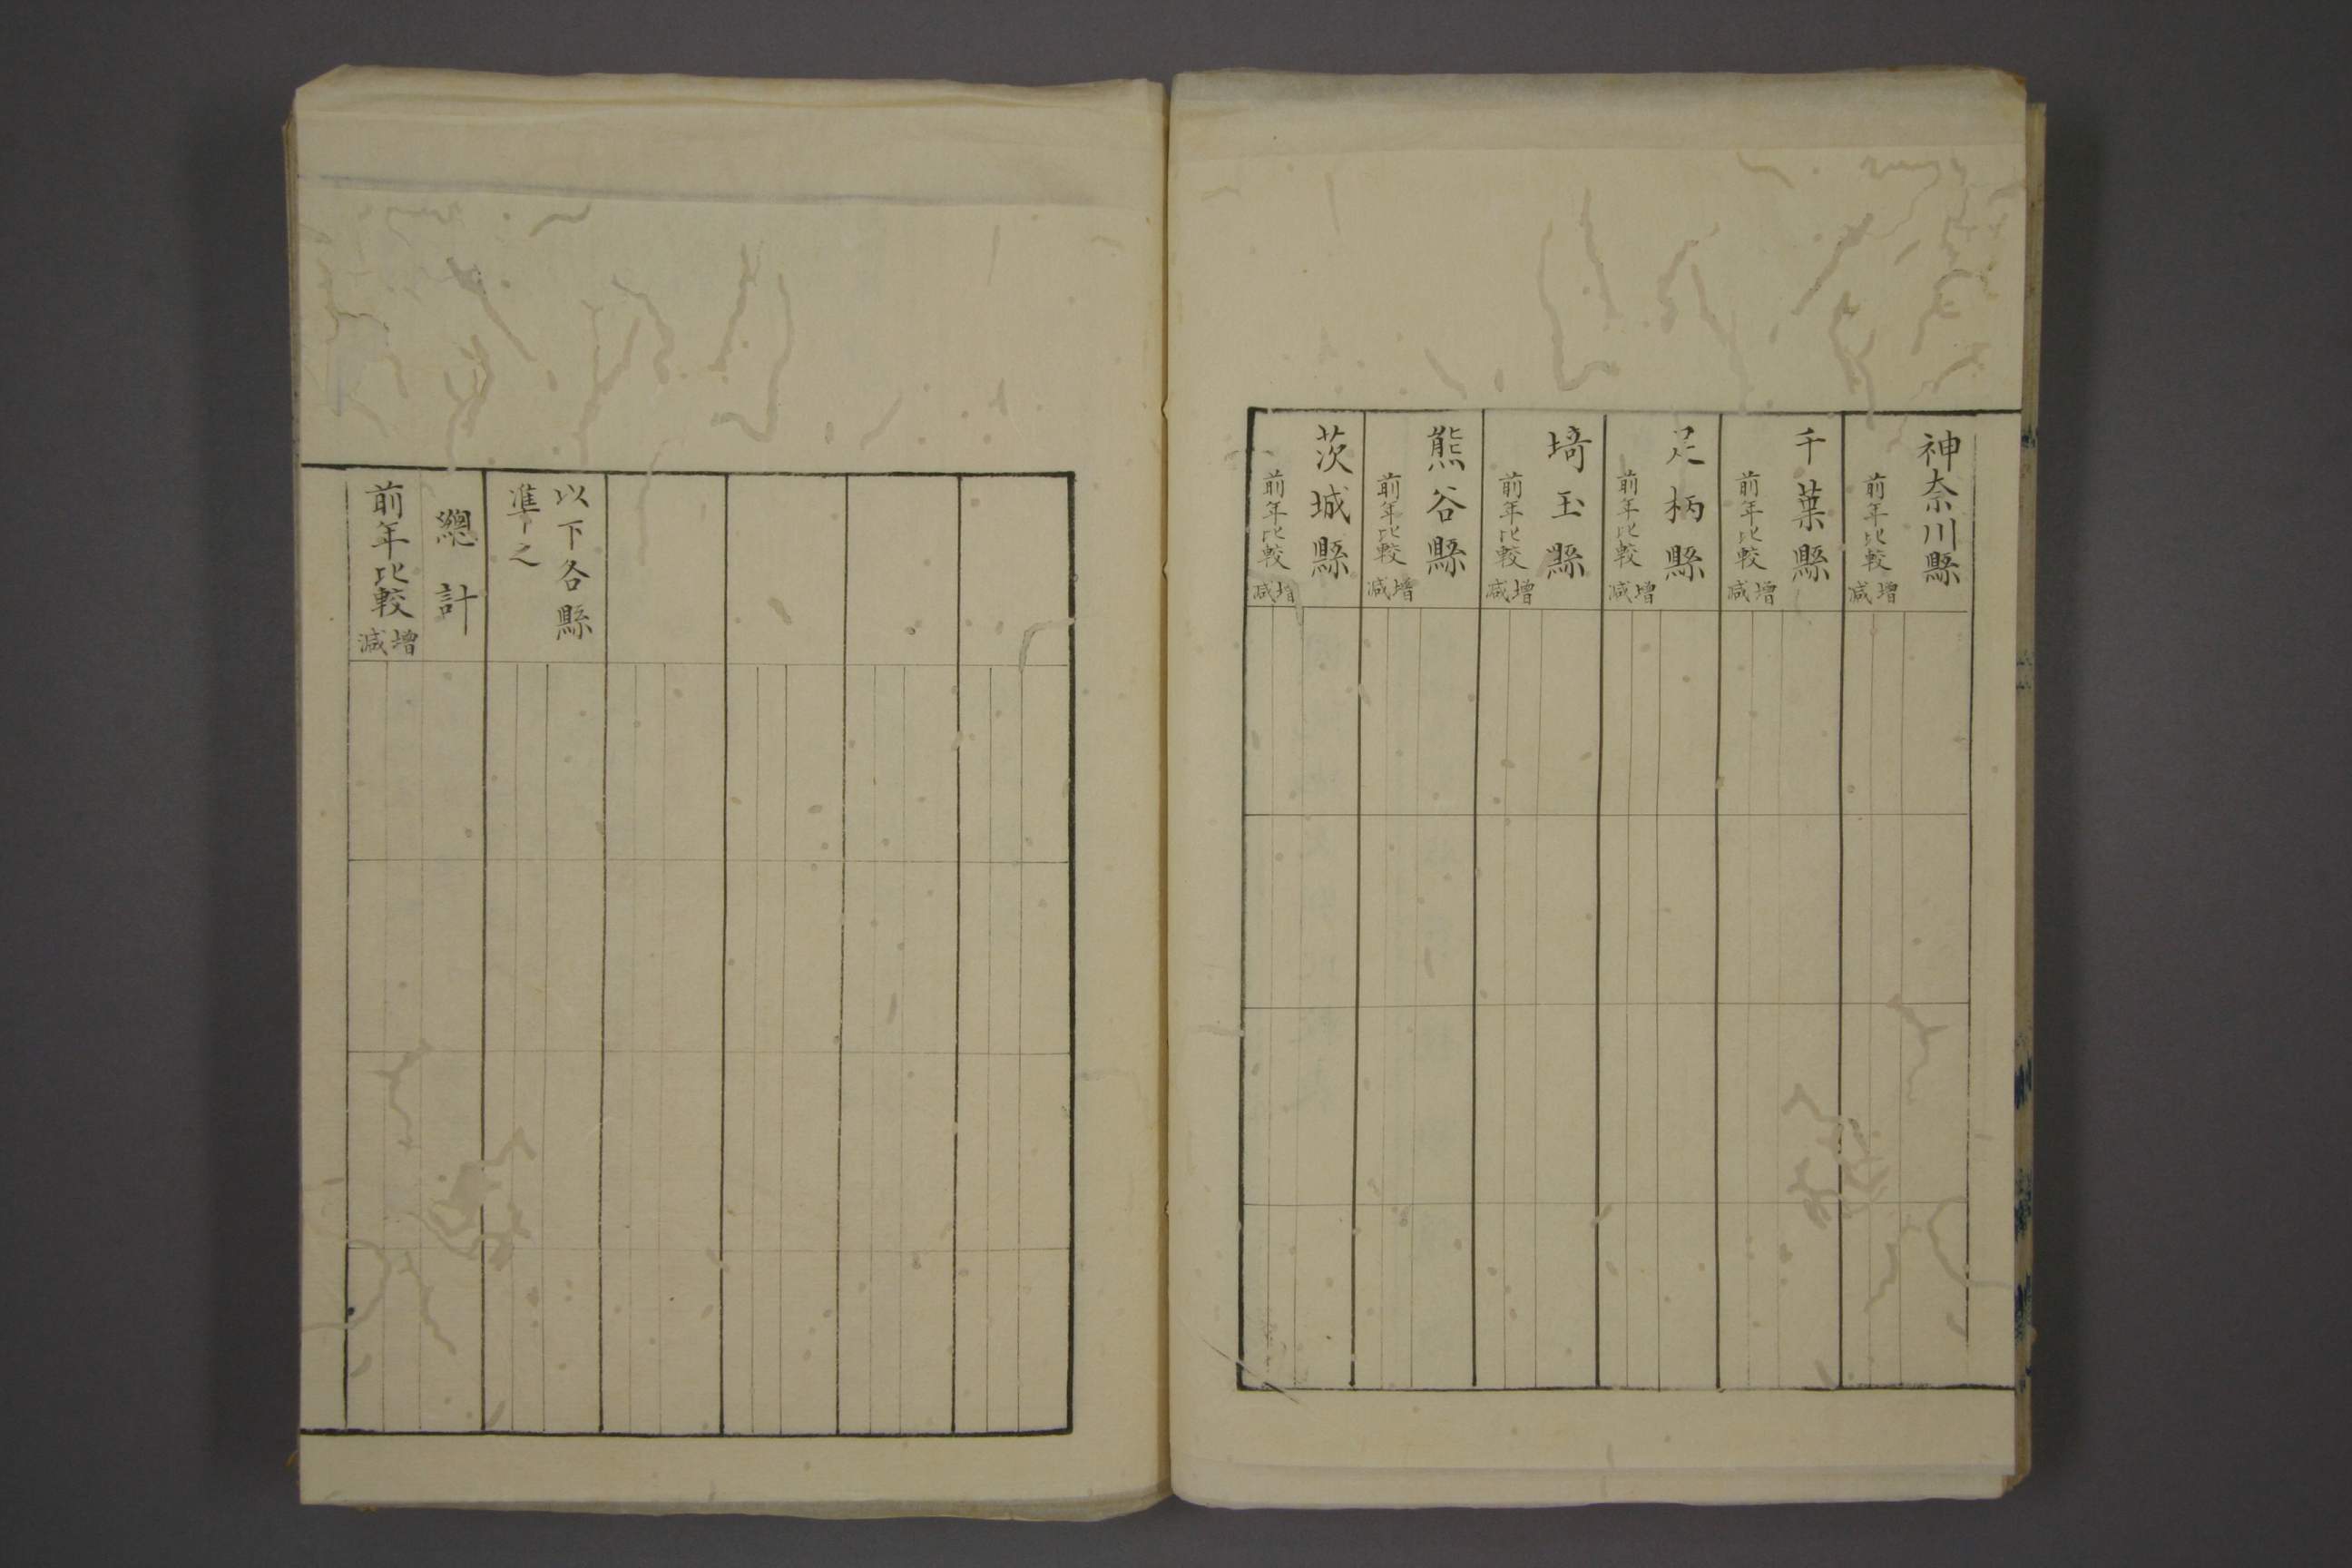 神奈川縣
前年比較
增
減
千葉縣
前年比較
增
減
足柄縣
前年比較
增
減
埼玉縣
前年比較
增
減
熊谷縣
前年比較
增
減
茨城縣
前年比較
增
減
以下各縣
準之
總計
前年比較
增
減